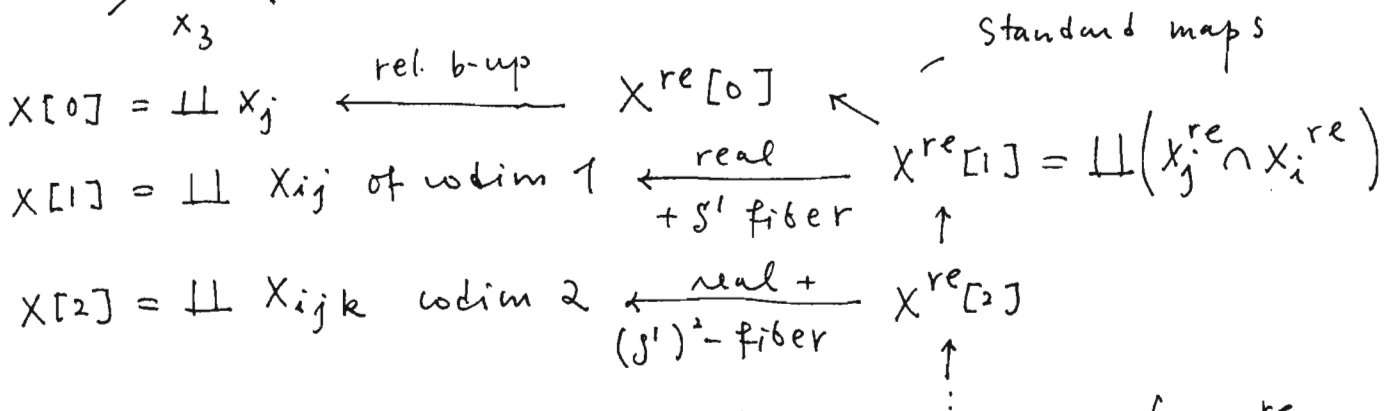 x_3
Standard maps
X[0] = ⊔ X_j ← rel. b-up X^{re}[0]
X[1] = ⊔ X_{ij} of codim 1 ← real + S^1 fiber X^{re}[1] = ⊔(X_j^{re} ∩ X_i^{re})
X[2] = ⊔ X_{ijk} codim 2 ← real + (S^1)^2-fiber X^{re}[2]